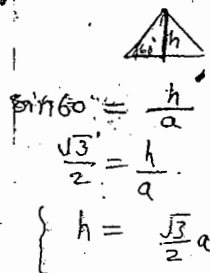 60° h
sin60° = h/a
√3/2 = h/a
h = √3/2 a